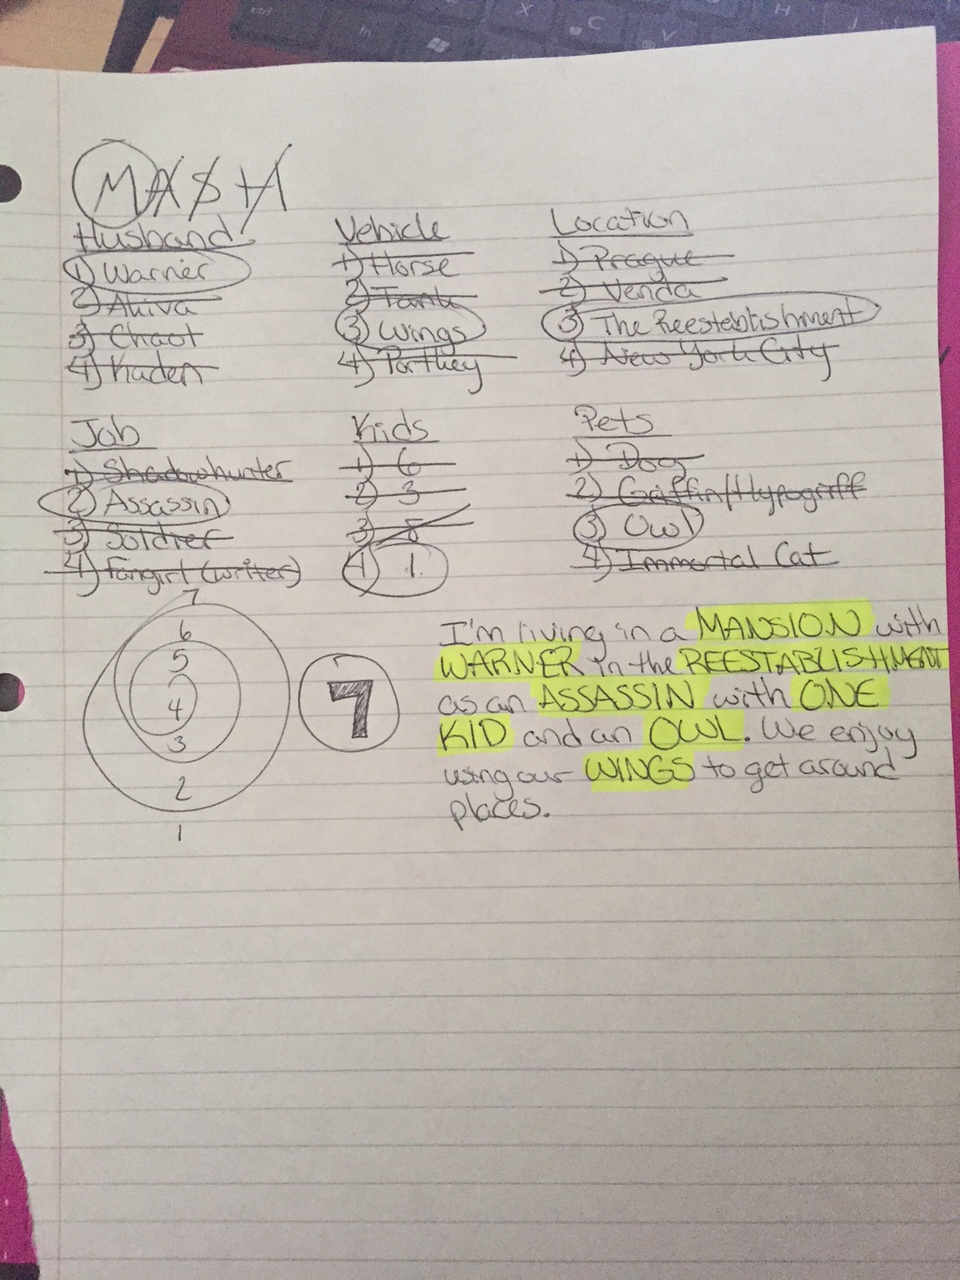 MASH
Husband Vehicle Location
1) Warner 1) Horse 1) Prague
2) Akiva 2) Tank 2) Venda
3) Chaol 3) Wings 3) The Reestablishment
4) Kaden 4) 4) New York City
Job Kids Pets
1) Shadowhunter 1) 6 1) Dog
2) Assassin 2) 3 2) Griffin/Hypogriff
3) Soldier 3) 3) Owl
4) Fangirl (writer) 4) 1 4) Immortal Cat
7
6
5
4
3
2
1
7
I'm living in a MANSION with
WARNER in the REESTABLISHMENT
as an ASSASSIN with ONE
KID and an OWL. We enjoy
using our WINGS to get around
places.